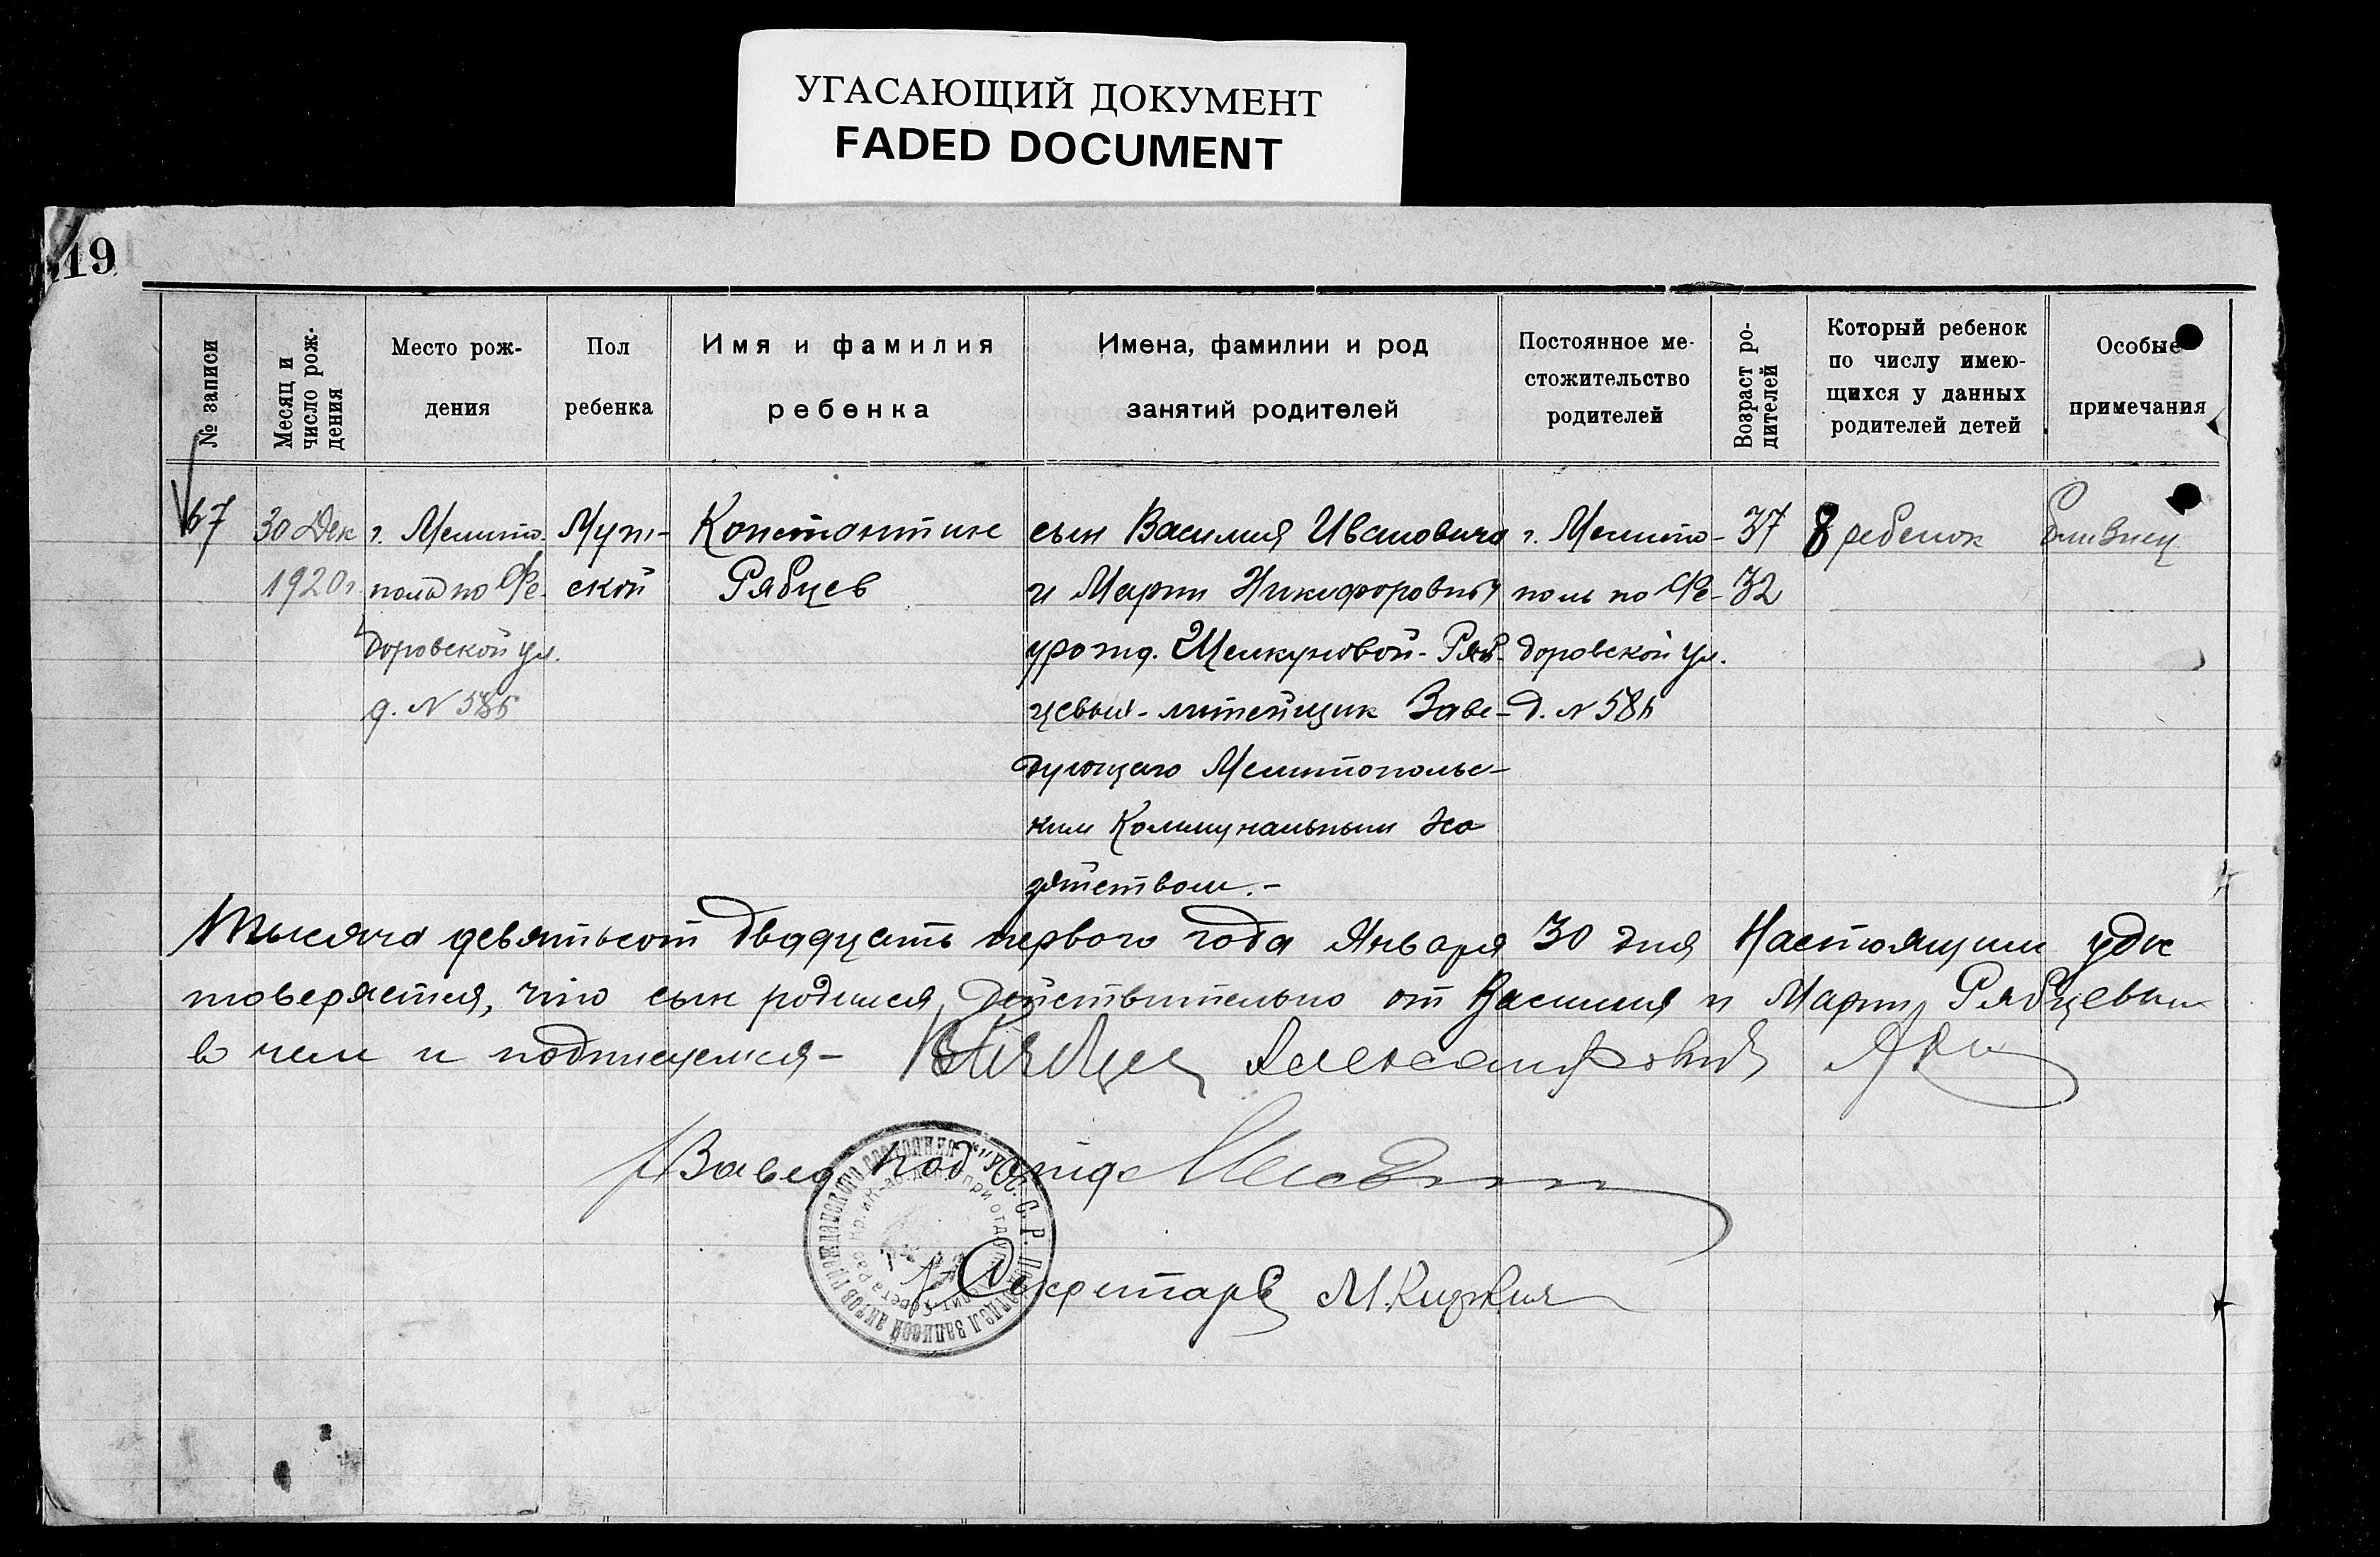 УГАСАЮЩИЙ ДОКУМЕНТ
FADED DOCUMENT
19
№ записи
Месяц и
число рож-
дения
Место рож-
дения
Пол
ребенка
Имя и фамилия
ребенка
Имена, фамилии и род
занятий родителей
Постоянное ме-
стожительство
родителей
Возраст ро-
дителей
Который ребенок
по числу имею-
щихся у данных
родителей детей
Особые
примечания
67
30 Дек
1920 г.
г. Мелито-
поль по Фе-
доровской ул.
д. N 58б
Муж-
ской
Константин
Рябцев
сын Василия Ивановича
и Марии Никифоровны
урожд. Щелкуновой - Ряб-
цевых - литейщик Заве-
дующаго Мелитопольс-
ким Коммунальным Хо
зяйством. -
г. Мелито-
поль по Фе-
доровской ул.
д. N 58б
37
32
8 ребенок
близнец
Тысяча девятьсот двадцать первого года Января 30 дня Настоящим удос
товеряется, что сын родился действительно от Василия и Марии Рябцевых
в чем и подписуемся - В Рябцев
Завед Подотд
Секретарь М.